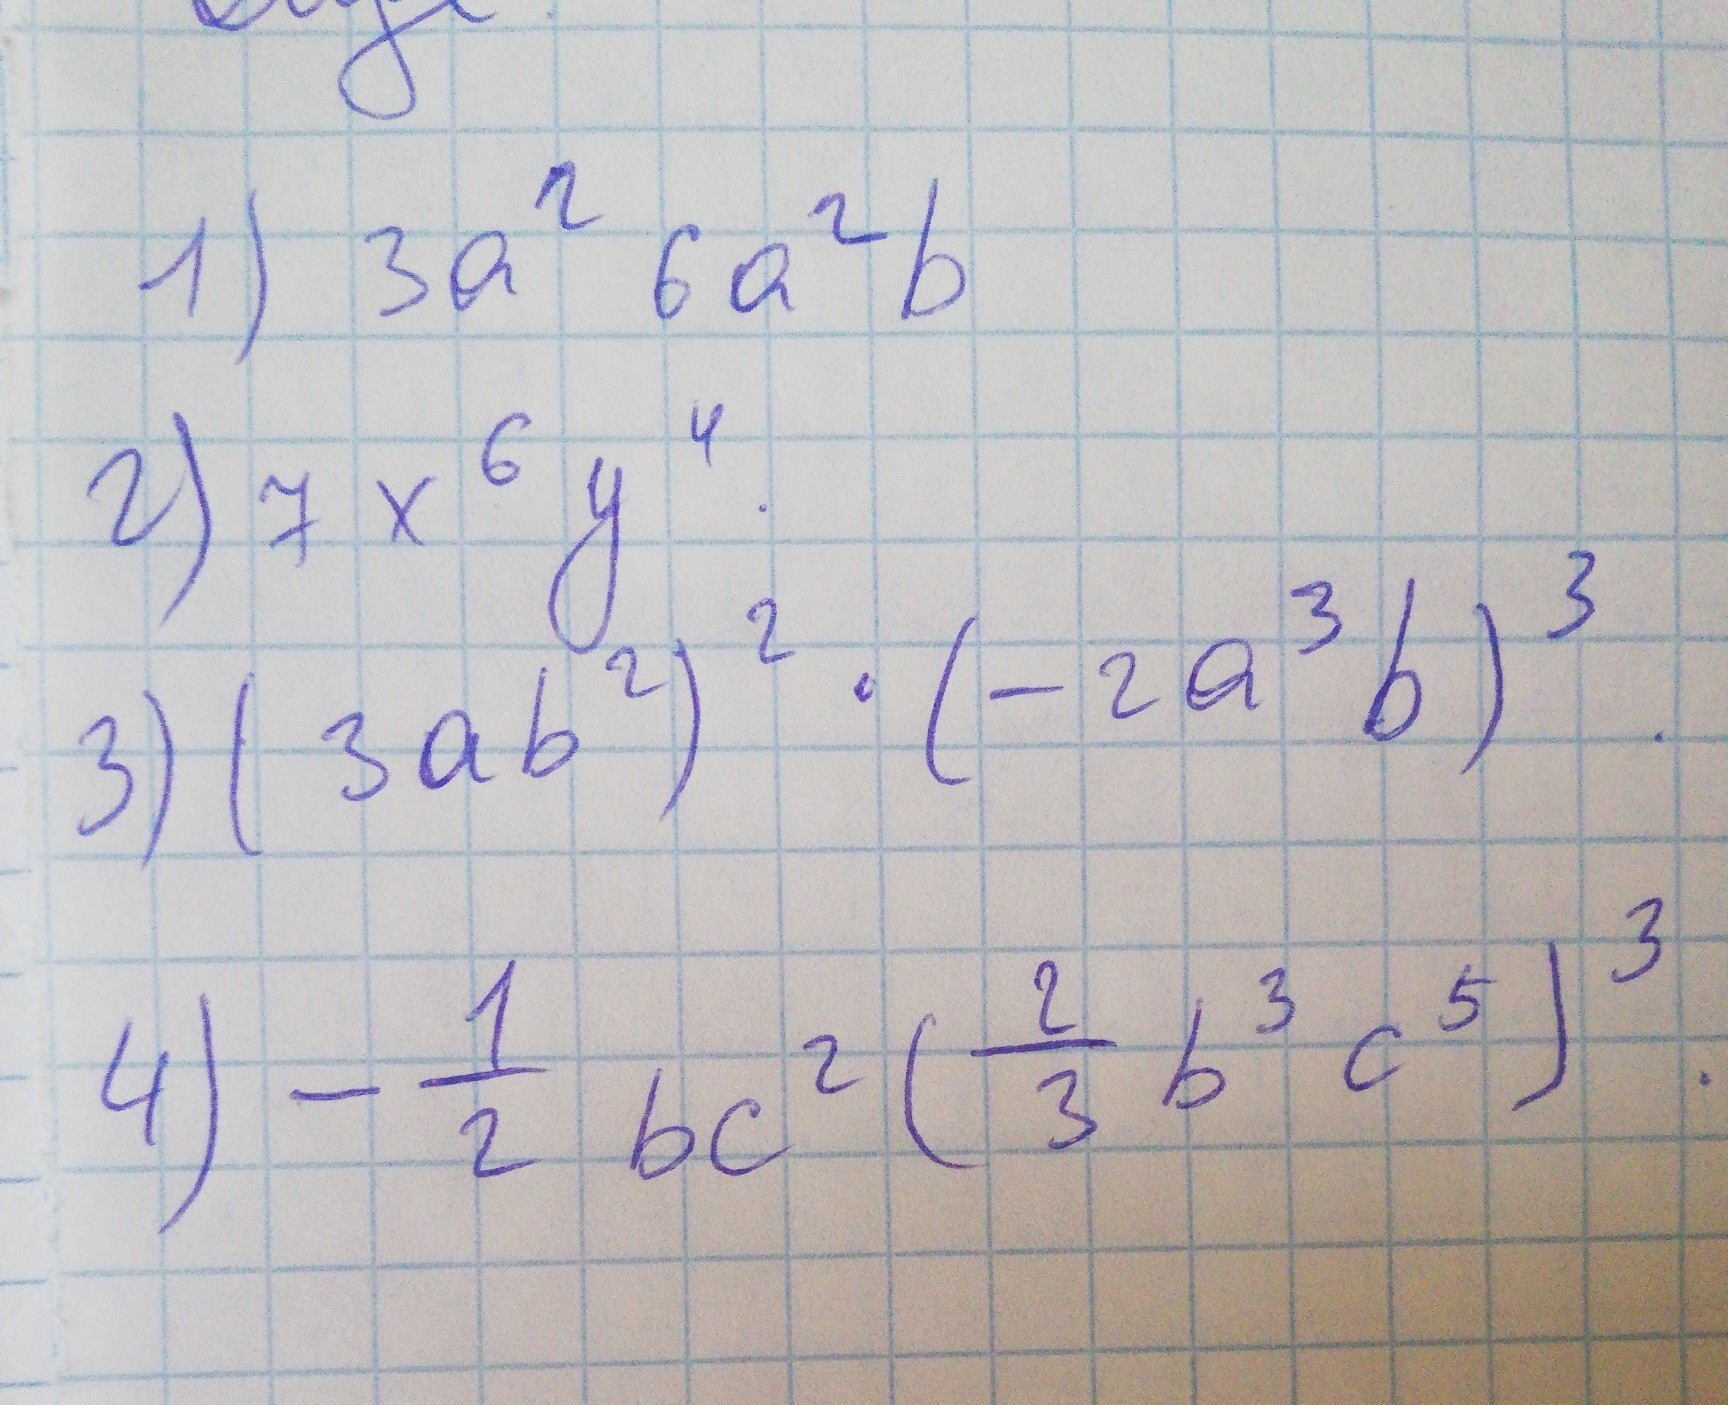 1) 3a² 6a²b
2) 7x⁶y⁴.
3) (3ab²)² · (-2a³b)³.
4) -1/2 bc² (2/3 b³c⁵)³.